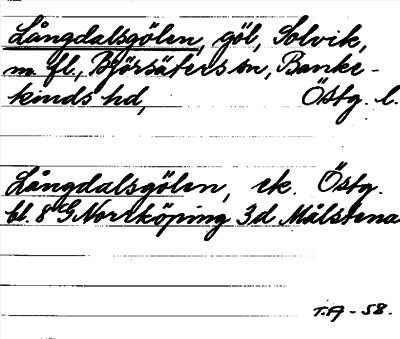 Långdalsgölen, göl, Solvik,
m. fl., Björsäters sn, Banke-
kinds hd, Östg. l.
Långdalsgölen, ek. Östg.
bl. 8 G Norrköping 3d Målstena
T.A - 58.